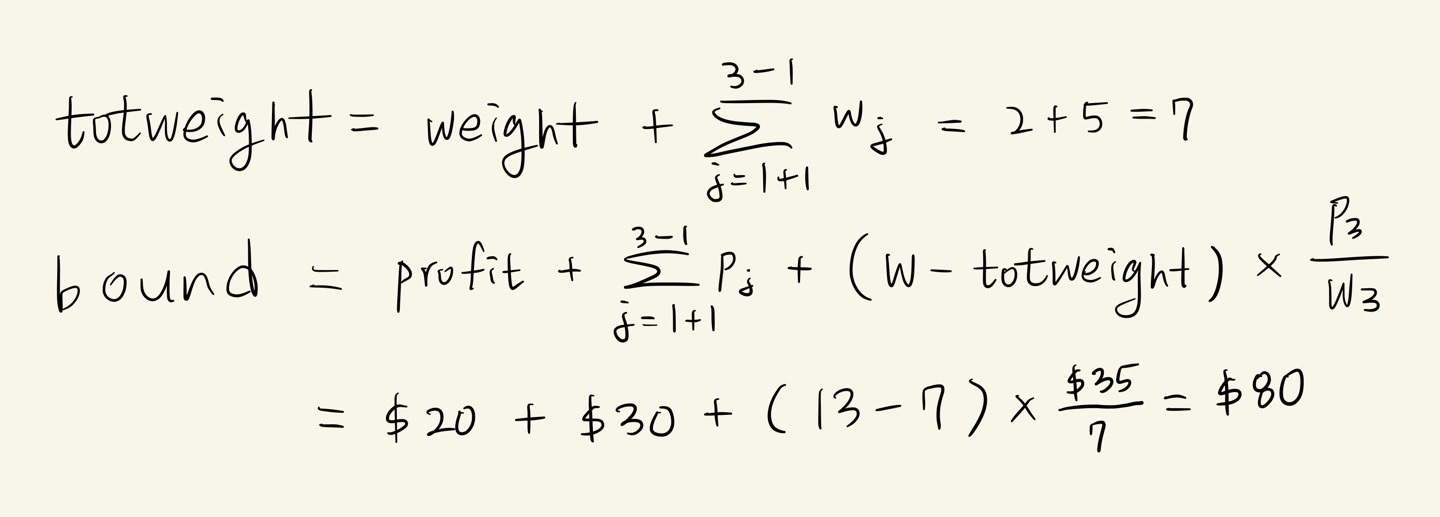 totweight = weight + \sum_{j=1+1}^{3-1} w_j = 2 + 5 = 7
bound = profit + \sum_{j=1+1}^{3-1} P_j + (W - totweight) × \frac{P_3}{W_3}
= $20 + $30 + (13 - 7) × \frac{$35}{7} = $80